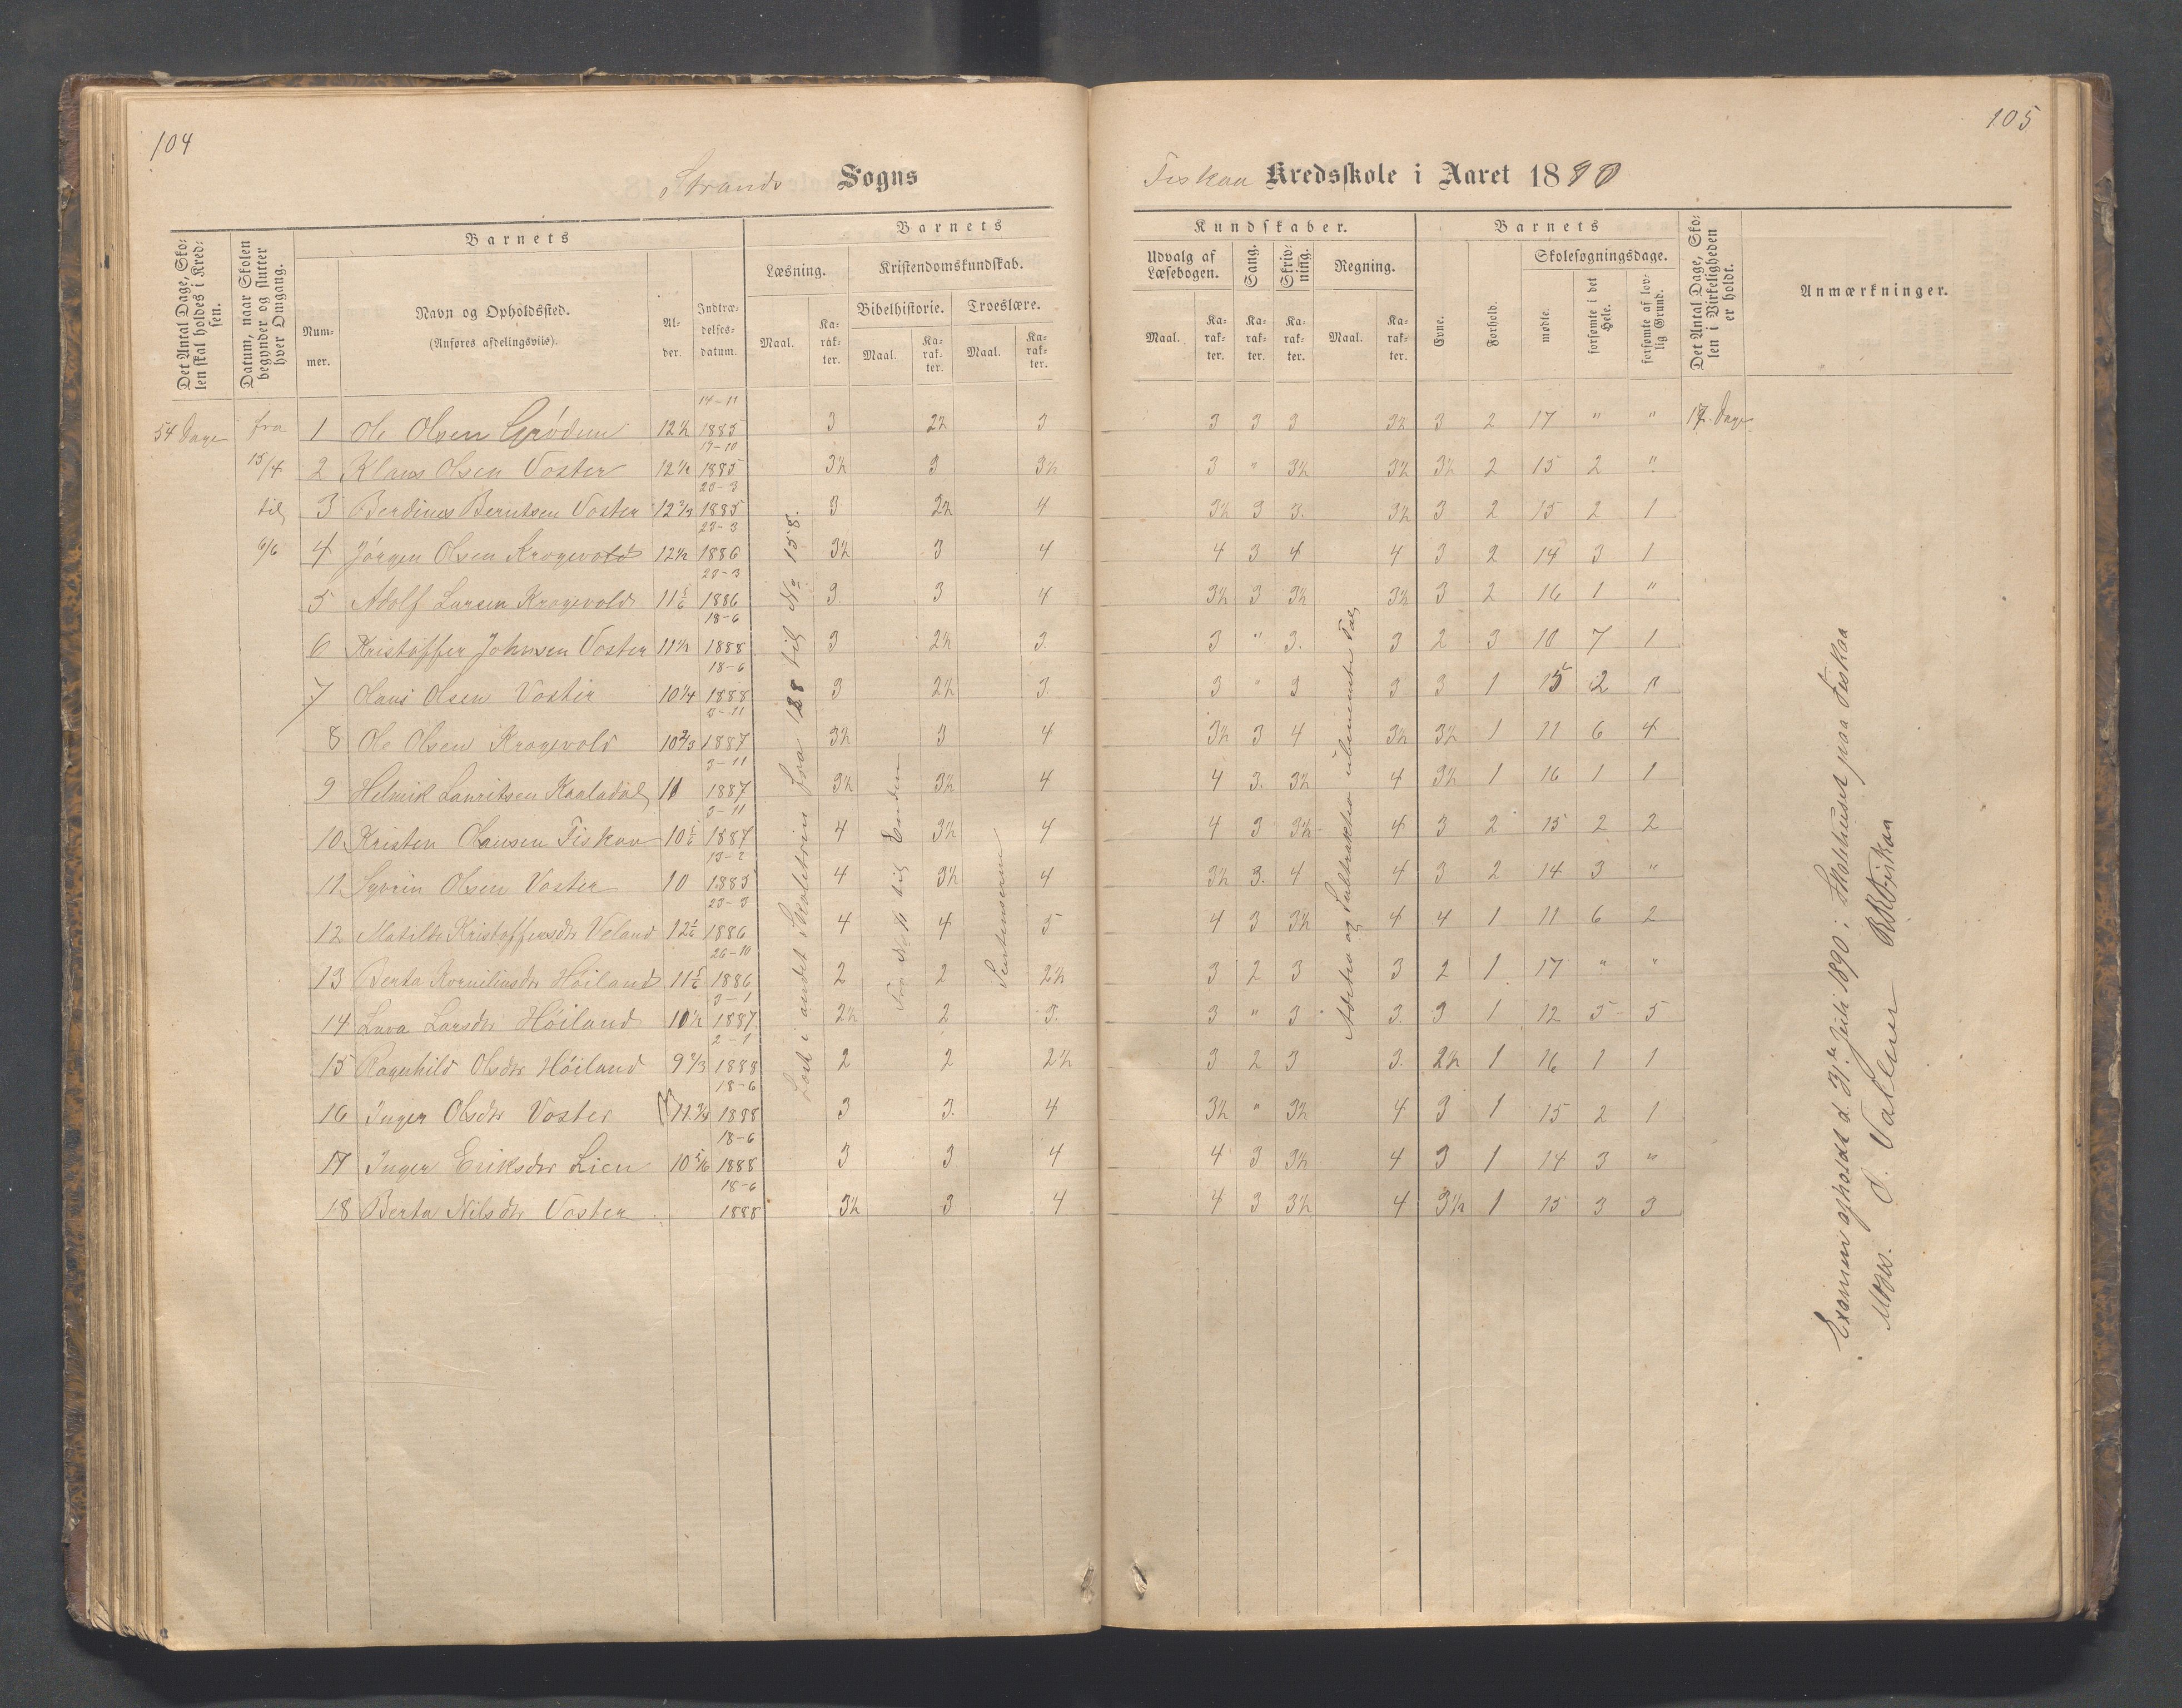 104
105
Strands Sogns
Fiskaa Kredsskole i Aaret 1890
Det Antal Dage, Skolen skal holdes i Kredsen.
Datum, naar Skolen begynder og slutter hver Omgang.
Barnets
Nummer.
Navn og Opholdssted.
(Anføres afdelingsviis).
Alder.
Indtrædelsesdatum.
Barnets
Læsning.
Kristendomskundskab.
Bibelhistorie.
Troeslære.
Maal. Karakter. Maal. Karakter. Maal. Karakter.
Kundskaber.
Udvalg af Læsebogen.
Sang.
Skrivning.
Regning.
Maal. Karakter. Karakter. Karakter. Maal. Karakter.
Barnets
Evne.
Forhold.
Skolesøgningsdage.
mødte.
forsømte i det Hele.
forsømte af lovlig Grund.
Det Antal Dage, Skolen i Virkeligheden er holdt.
Anmærkninger.
54 Dage fra 1 Ole Olsen Grödem 12½ 14-11 1885 3 2½ 3 3 3 3 3½ 3 2 17 " " 17 Dage
15/4 2 Klaus Olsen Voster 12½ 19-10 1885 3½ 3 3½ 3 " 3½ 3½ 3½ 2 15 2 "
til 3 Berdines Berntsen Voster 12⅔ 23-3 1885 3 2½ 4 3½ 3 3. 3½ 3 2 15 2 1
6/6 4 Jörgen Olsen Krogevold 12½ 23-3 1886 3½ 3 4 4 3 4 4 3 2 14 3 1
5 Adolf Larsen Krogevold 11 5/6 23-3 1886 3 3 4 3½ 3 3½ 3½ 3 2 16 1 "
6 Kristoffer Johnsen Voster 11½ 18-6 1888 3 2½ 3. 3 " 3. 3 2 3 10 7 1
7 Hans Olsen Voster 10¼ 18-6 1888 3 2½ 3 3 " 3 3 3 1 15 2 "
8 Ole Olsen Krogevold 10⅔ 3-11 1887 3½ 3 4 3½ 3 4 3½ 3½ 1 11 6 4
9 Helmik Lauritsen Kaaladal 11 3-11 1887 3½ 3½ 4 4 3. 3½ 4 3½ 1 16 1 1
10 Kristen Hansen Fiskaa 10 5/6 3-11 1887 4 3½ 4 4 3 3½ 4 3 2 15 2 2
11 Syvrin Olsen Voster 10 13-2 1885 4 3½ 4 3½ 3. 4 4 3 2 14 3 "
12 Matilde Kristoffersdr Veland 12 1/6 23-3 1886 4 4 5 4 3 3½ 4 4 1 11 6 2
13 Berta Korneliusdr Höiland 11 5/6 26-10 1886 2 2 2½ 3 2 3 3 2 1 17 " "
14 Lava Larsdr Höiland 10½ 3-1 1887 2½ 2 3. 3 " 3 3. 3 1 12 5 5
15 Ragnhild Olsdr Höiland 9⅔ 2-1 1888 2 2 2½ 3 2 3 3. 2½ 1 16 1 1
16 Inger Olsdr Voster 11¾ 18-6 1888 3 3. 4 3½ " 3½ 4 3 1 15 2 1
17 Inger Eriksdr Lien 10 5/6 18-6 1888 3 3 4 4 3 3½ 4 3 1 14 3 "
18 Berta Nilsdr Voster 18-6 1888 3½ 3 4 4 3 3½ 4 3½ 1 15 3 3
Læst i andet Skoletrin fra 128 til No 158.
til Enden
Addition og Subtraktion
Examen afholdt d. 31te Juli 1890 i Skolehuset paa Fiskaa
O. Vatne R.R. Fiskaa